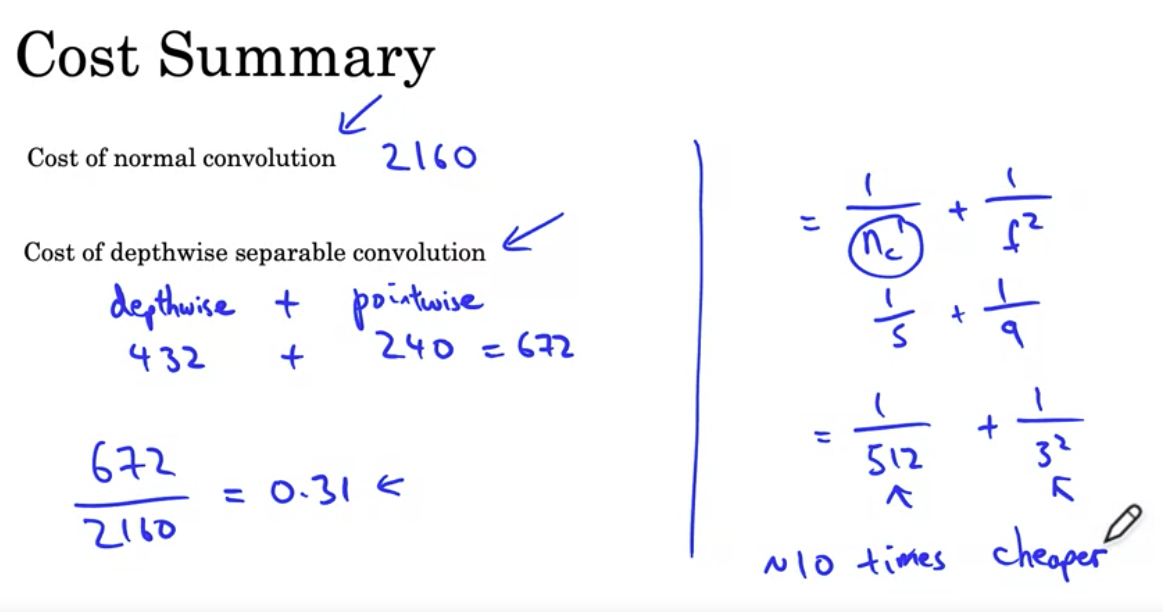 Cost Summary
Cost of normal convolution 2160
Cost of depthwise separable convolution
depthwise + pointwise
432 + 240 = 672
672/2160 = 0.31
= 1/nc' + 1/f²
1/5 + 1/9
= 1/512 + 1/3²
~10 times cheaper